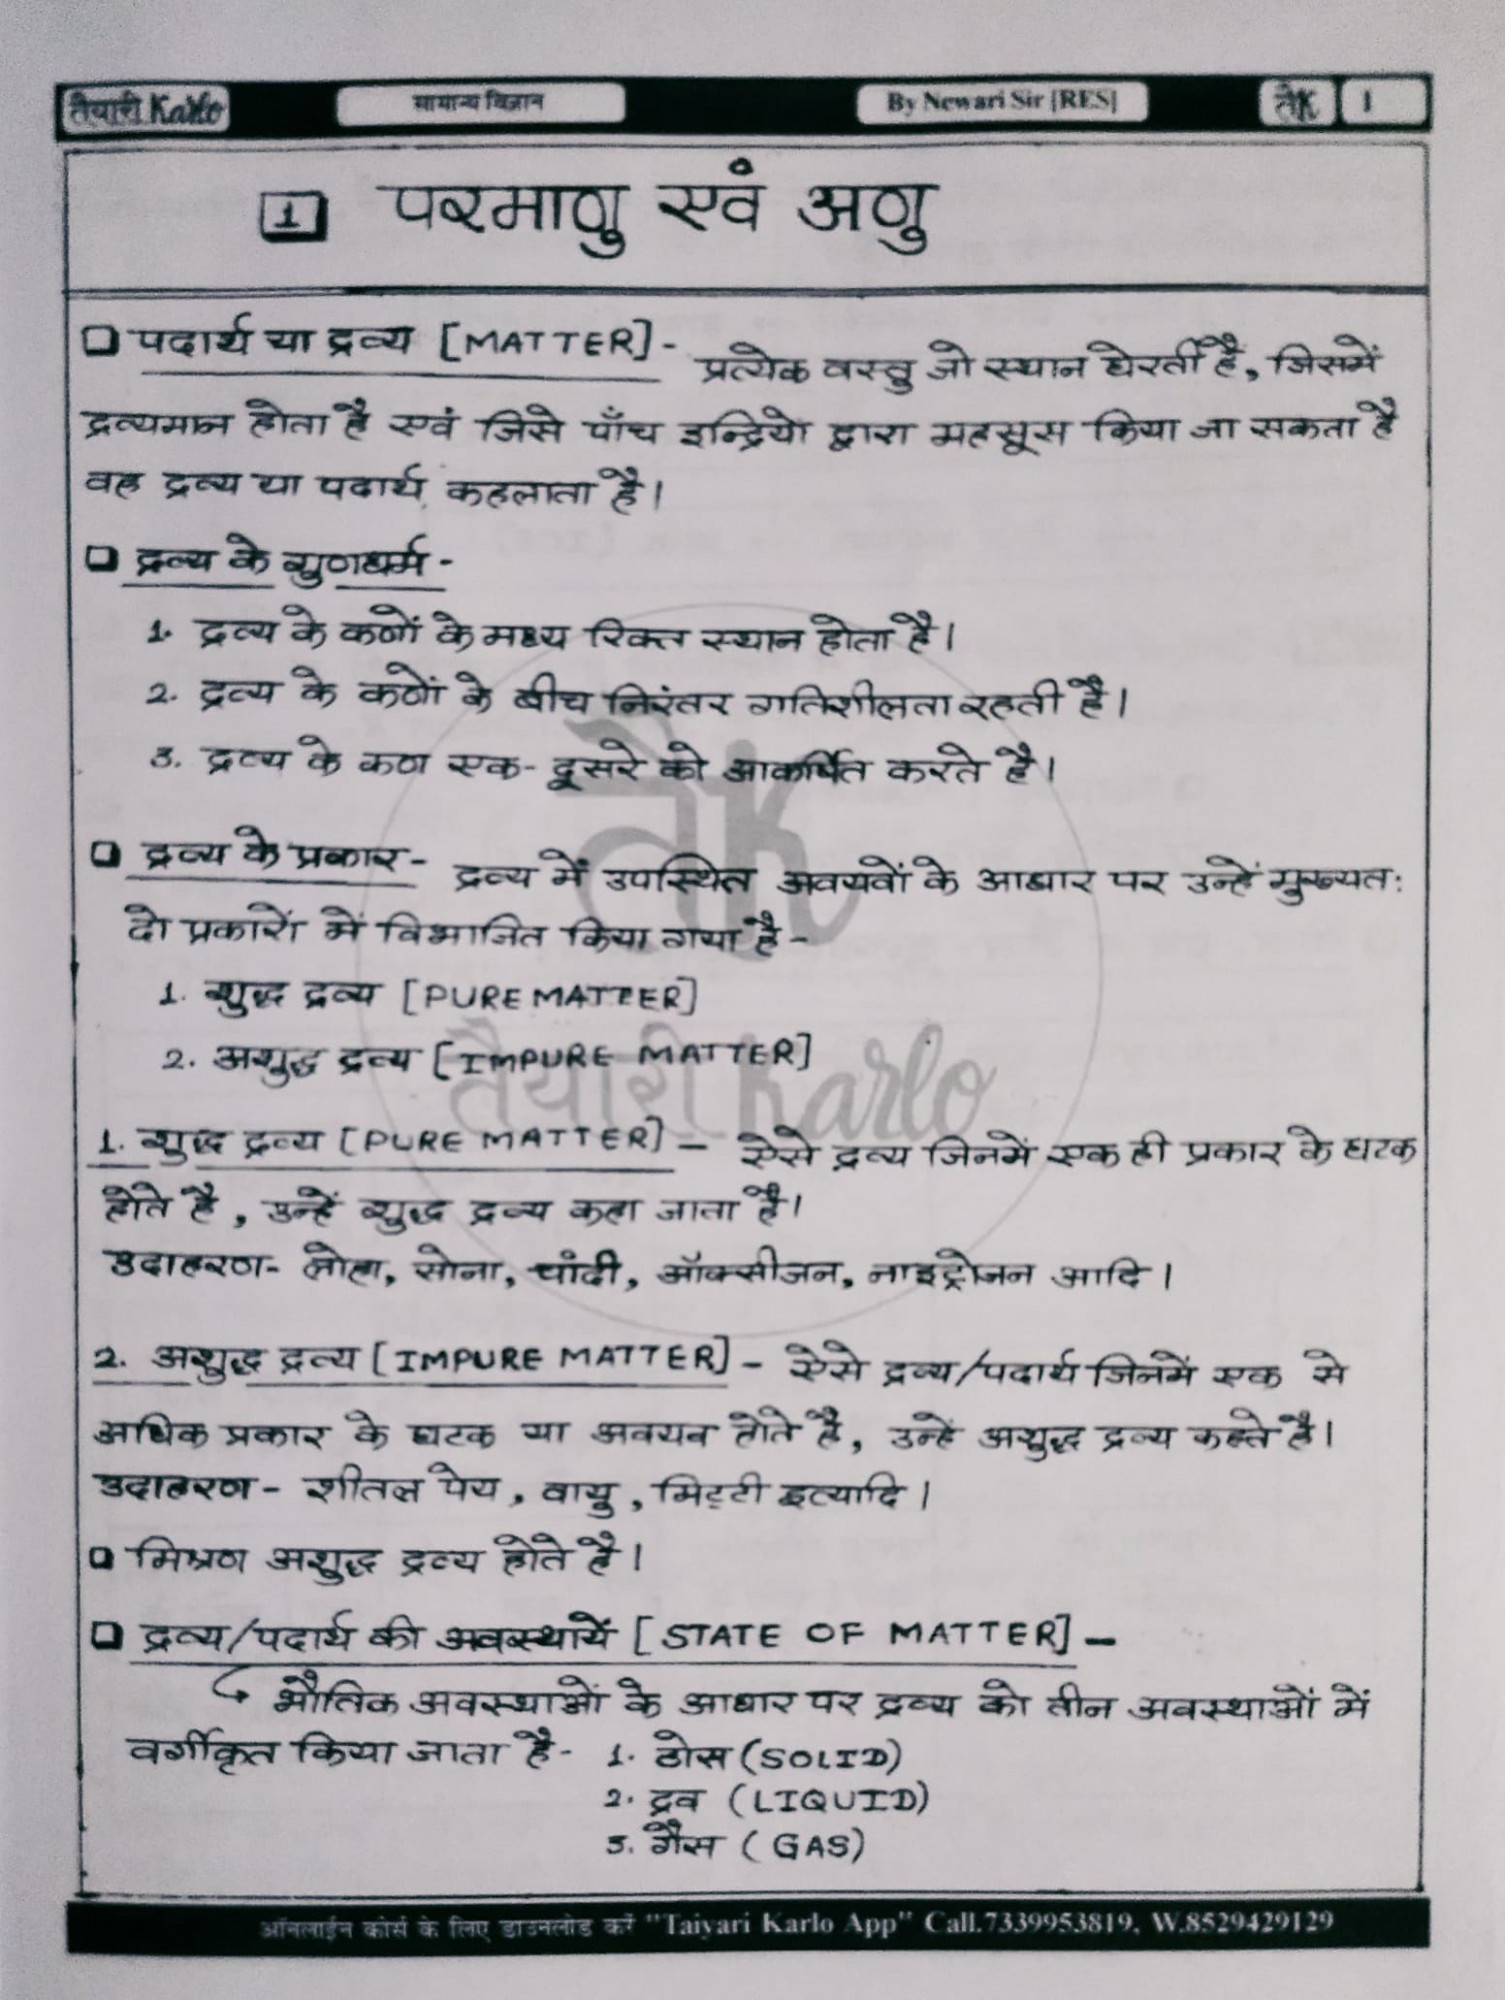 तैयारी Karlo सामान्य विज्ञान By Newari Sir [RES] तैK 1
1 परमाणु एवं अणु
पदार्थ या द्रव्य [MATTER]- प्रत्येक वस्तु जो स्थान घेरती है, जिसमें
द्रव्यमान होता है एवं जिसे पाँच इन्द्रियो द्वारा महसूस किया जा सकता है
वह द्रव्य या पदार्थ कहलाता है।
द्रव्य के गुणधर्म-
1. द्रव्य के कणों के मध्य रिक्त स्थान होता है।
2. द्रव्य के कणों के बीच निरंतर गतिशीलता रहती है।
3. द्रव्य के कण एक-दूसरे को आकर्षित करते है।
द्रव्य के प्रकार- द्रव्य में उपस्थित अवयवों के आधार पर उन्हें मुख्यत:
दो प्रकारों में विभाजित किया गया है-
1. शुद्ध द्रव्य [PURE MATTER]
2. अशुद्ध द्रव्य [IMPURE MATTER]
तैK
तैयारी Karlo
1. शुद्ध द्रव्य [PURE MATTER] - ऐसे द्रव्य जिनमें एक ही प्रकार के घटक
होते है, उन्हें शुद्ध द्रव्य कहा जाता है।
उदाहरण- लोहा, सोना, चांदी, ऑक्सीजन, नाइट्रोजन आदि।
2. अशुद्ध द्रव्य [IMPURE MATTER] - ऐसे द्रव्य/पदार्थ जिनमें एक से
अधिक प्रकार के घटक या अवयव होते है, उन्हें अशुद्ध द्रव्य कहते है।
उदाहरण- शीतल पेय, वायु, मिट्टी इत्यादि।
मिश्रण अशुद्ध द्रव्य होते है।
द्रव्य/पदार्थ की अवस्थायें [STATE OF MATTER] -
भौतिक अवस्थाओं के आधार पर द्रव्य को तीन अवस्थाओं में
वर्गीकृत किया जाता है- 1. ठोस (SOLID)
2. द्रव (LIQUID)
3. गैस (GAS)
ऑनलाईन कोर्स के लिए डाउनलोड करें "Taiyari Karlo App" Call.7339953819, W.8529429129